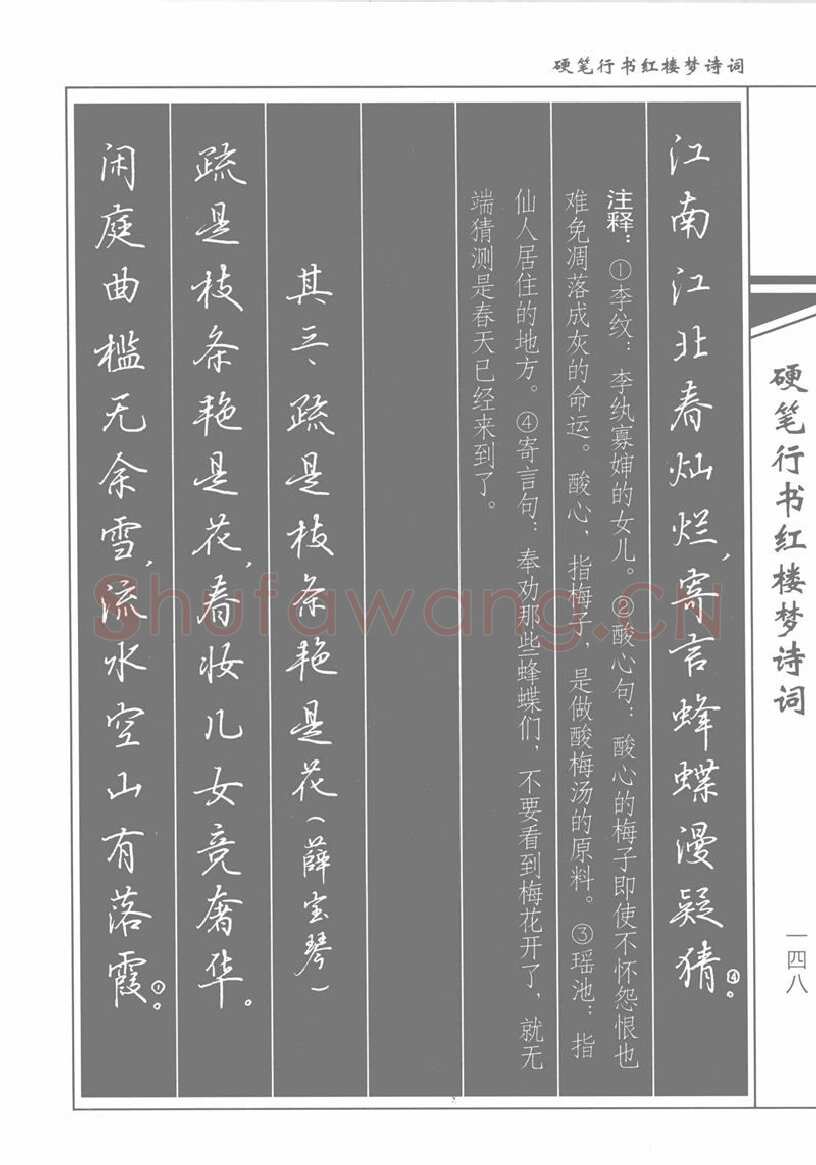 硬笔行书红楼梦诗词
江南江北春灿烂，寄言蜂蝶漫疑猜④。
注释：①李纹：李纨寡婶的女儿。②酸心句：酸心的梅子即使不怀怨恨也
难免凋落成灰的命运。酸心，指梅子，是做酸梅汤的原料。③瑶池：指
仙人居住的地方。④寄言句：奉劝那些蜂蝶们，不要看到梅花开了，就无
端猜测是春天已经来到了。
其三、疏是枝条艳是花（薛宝琴）
疏是枝条艳是花，春妆儿女竞奢华。
闲庭曲槛无余雪，流水空山有落霞①。
硬笔行书红楼梦诗词
一四八
Shufawang.CN